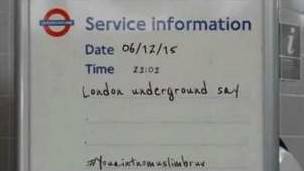 UNDERGROUND
Service information
Date 06/12/15
Time 23:03
London underground say
#Youaintnomuslimbruv